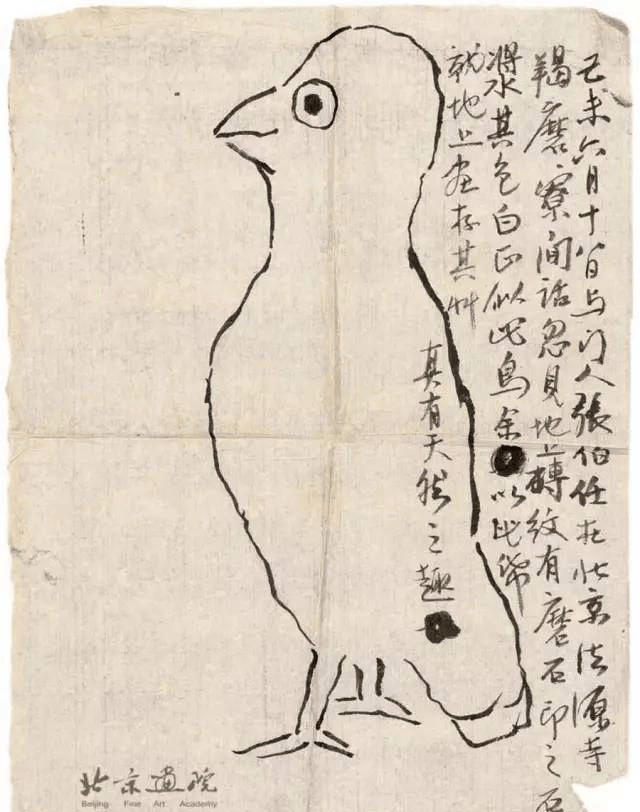 己未六月十八日与门人張伯任在北京法源寺
羯磨寮閒話忽見地上磚紋有磨石印之石
漿水其色白正似此鳥余以此帋
就地上画存其艸
真有天然之趣
北京画院
Beijing Fine Art Academy